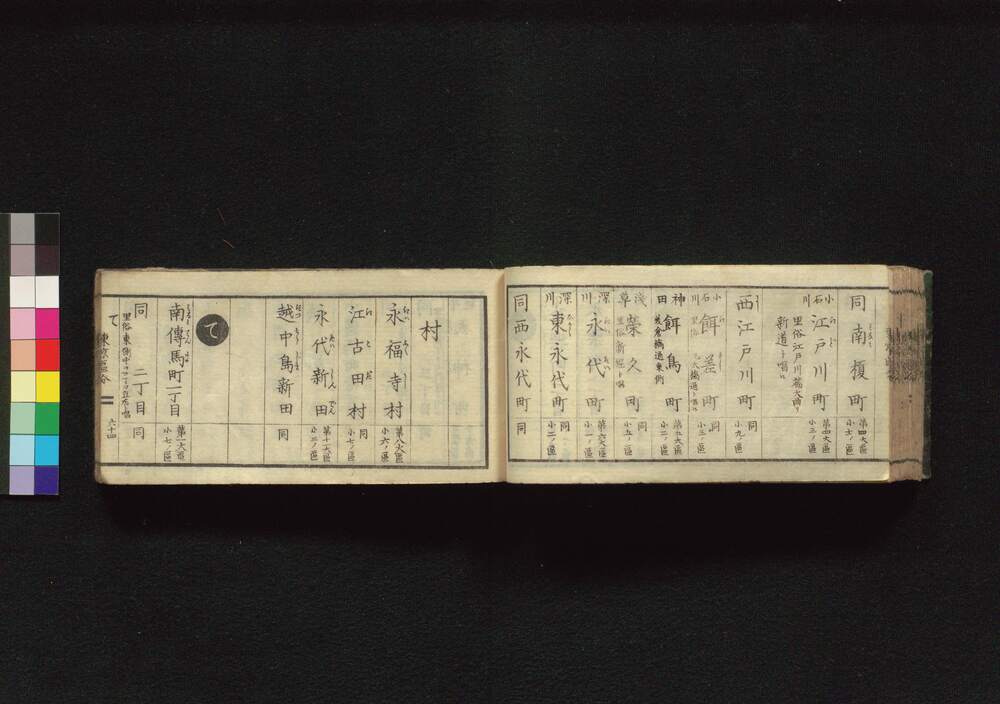 同南榎町
第四大區
小七ノ區
小石川
江戸川町
第四大區
小三ノ區
里俗江戸川
新道ト唱フ
西江戸川町
同
小九ノ區
小石川
餌差町
同
小三ノ區
神田
餌鳥町
美倉橋通東側
第五大區
小二ノ區
浅草
榮久町
里俗新堀ト唱
同
小五ノ區
深川
永代町
第六大區
小一ノ區
深川
東永代町
同
小二ノ區
同西永代町
同
村
永福寺村
第八大區
小六ノ區
江古田村
同
小七ノ區
永代新田
第十一大區
小二ノ區
越中島新田
同
て
南傳馬町一丁目
第一大區
小七ノ區
同二丁目
同
て
六十四